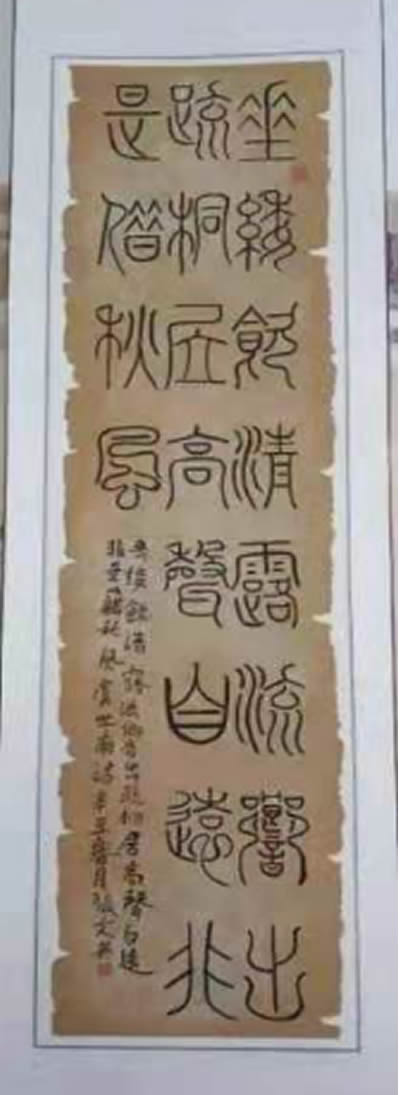 垂緌飲清露流響出
疏桐居高聲自遠非
是借秋風
垂緌飲清露流響出疏桐居高聲自遠
非是藉秋風虞世南詩辛丑月張文